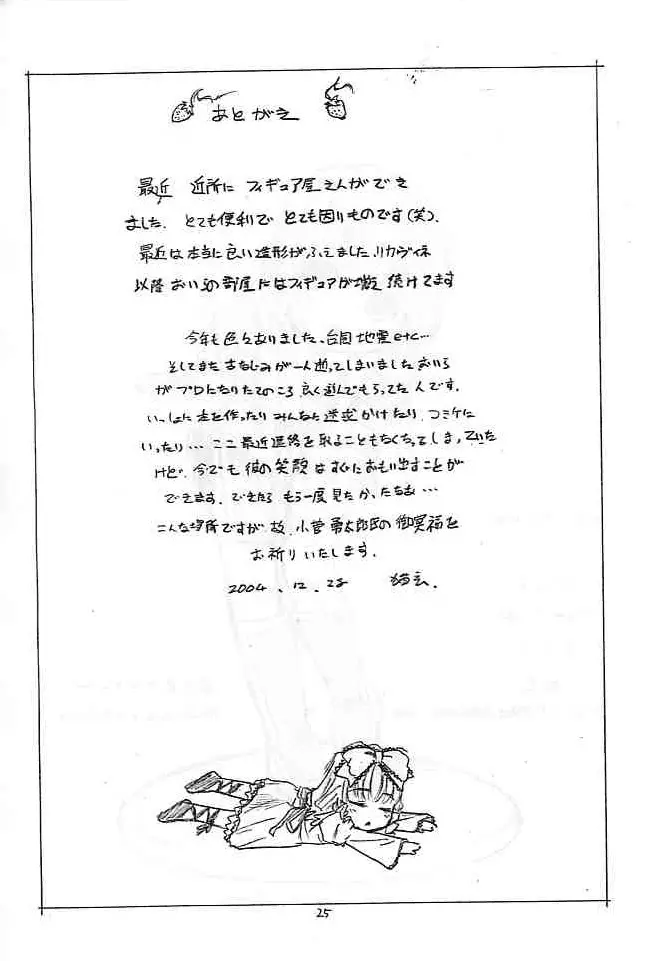 あとがき
最近 近所に フィギュア屋さんができ
ました. とても便利で とても困りものです(笑).
最近は本当に良い造形がふえました.リカヴィネ
以降 おいらの部屋にはフィギュアが増え 続けてます
今年も色々ありました、台風 地震etc…
そしてまた おなじみが一人逝ってしまいました おいら
がプロになりたてのころ 良く遊んでもらってた人です.
いっしょに 本を作ったり みんなに 迷惑かけたり コミケに
いったり… ここ最近連絡を取ることもなくなってしまっていた
けど. 今でも 彼の笑顔は すぐにおもい出すことが
できます. できたら もう一度 見たかったなぁ…
こんな場所ですが 故. 小菅 勇太郎氏の御冥福を
お祈りいたします.
2004 . 12 . 28
25